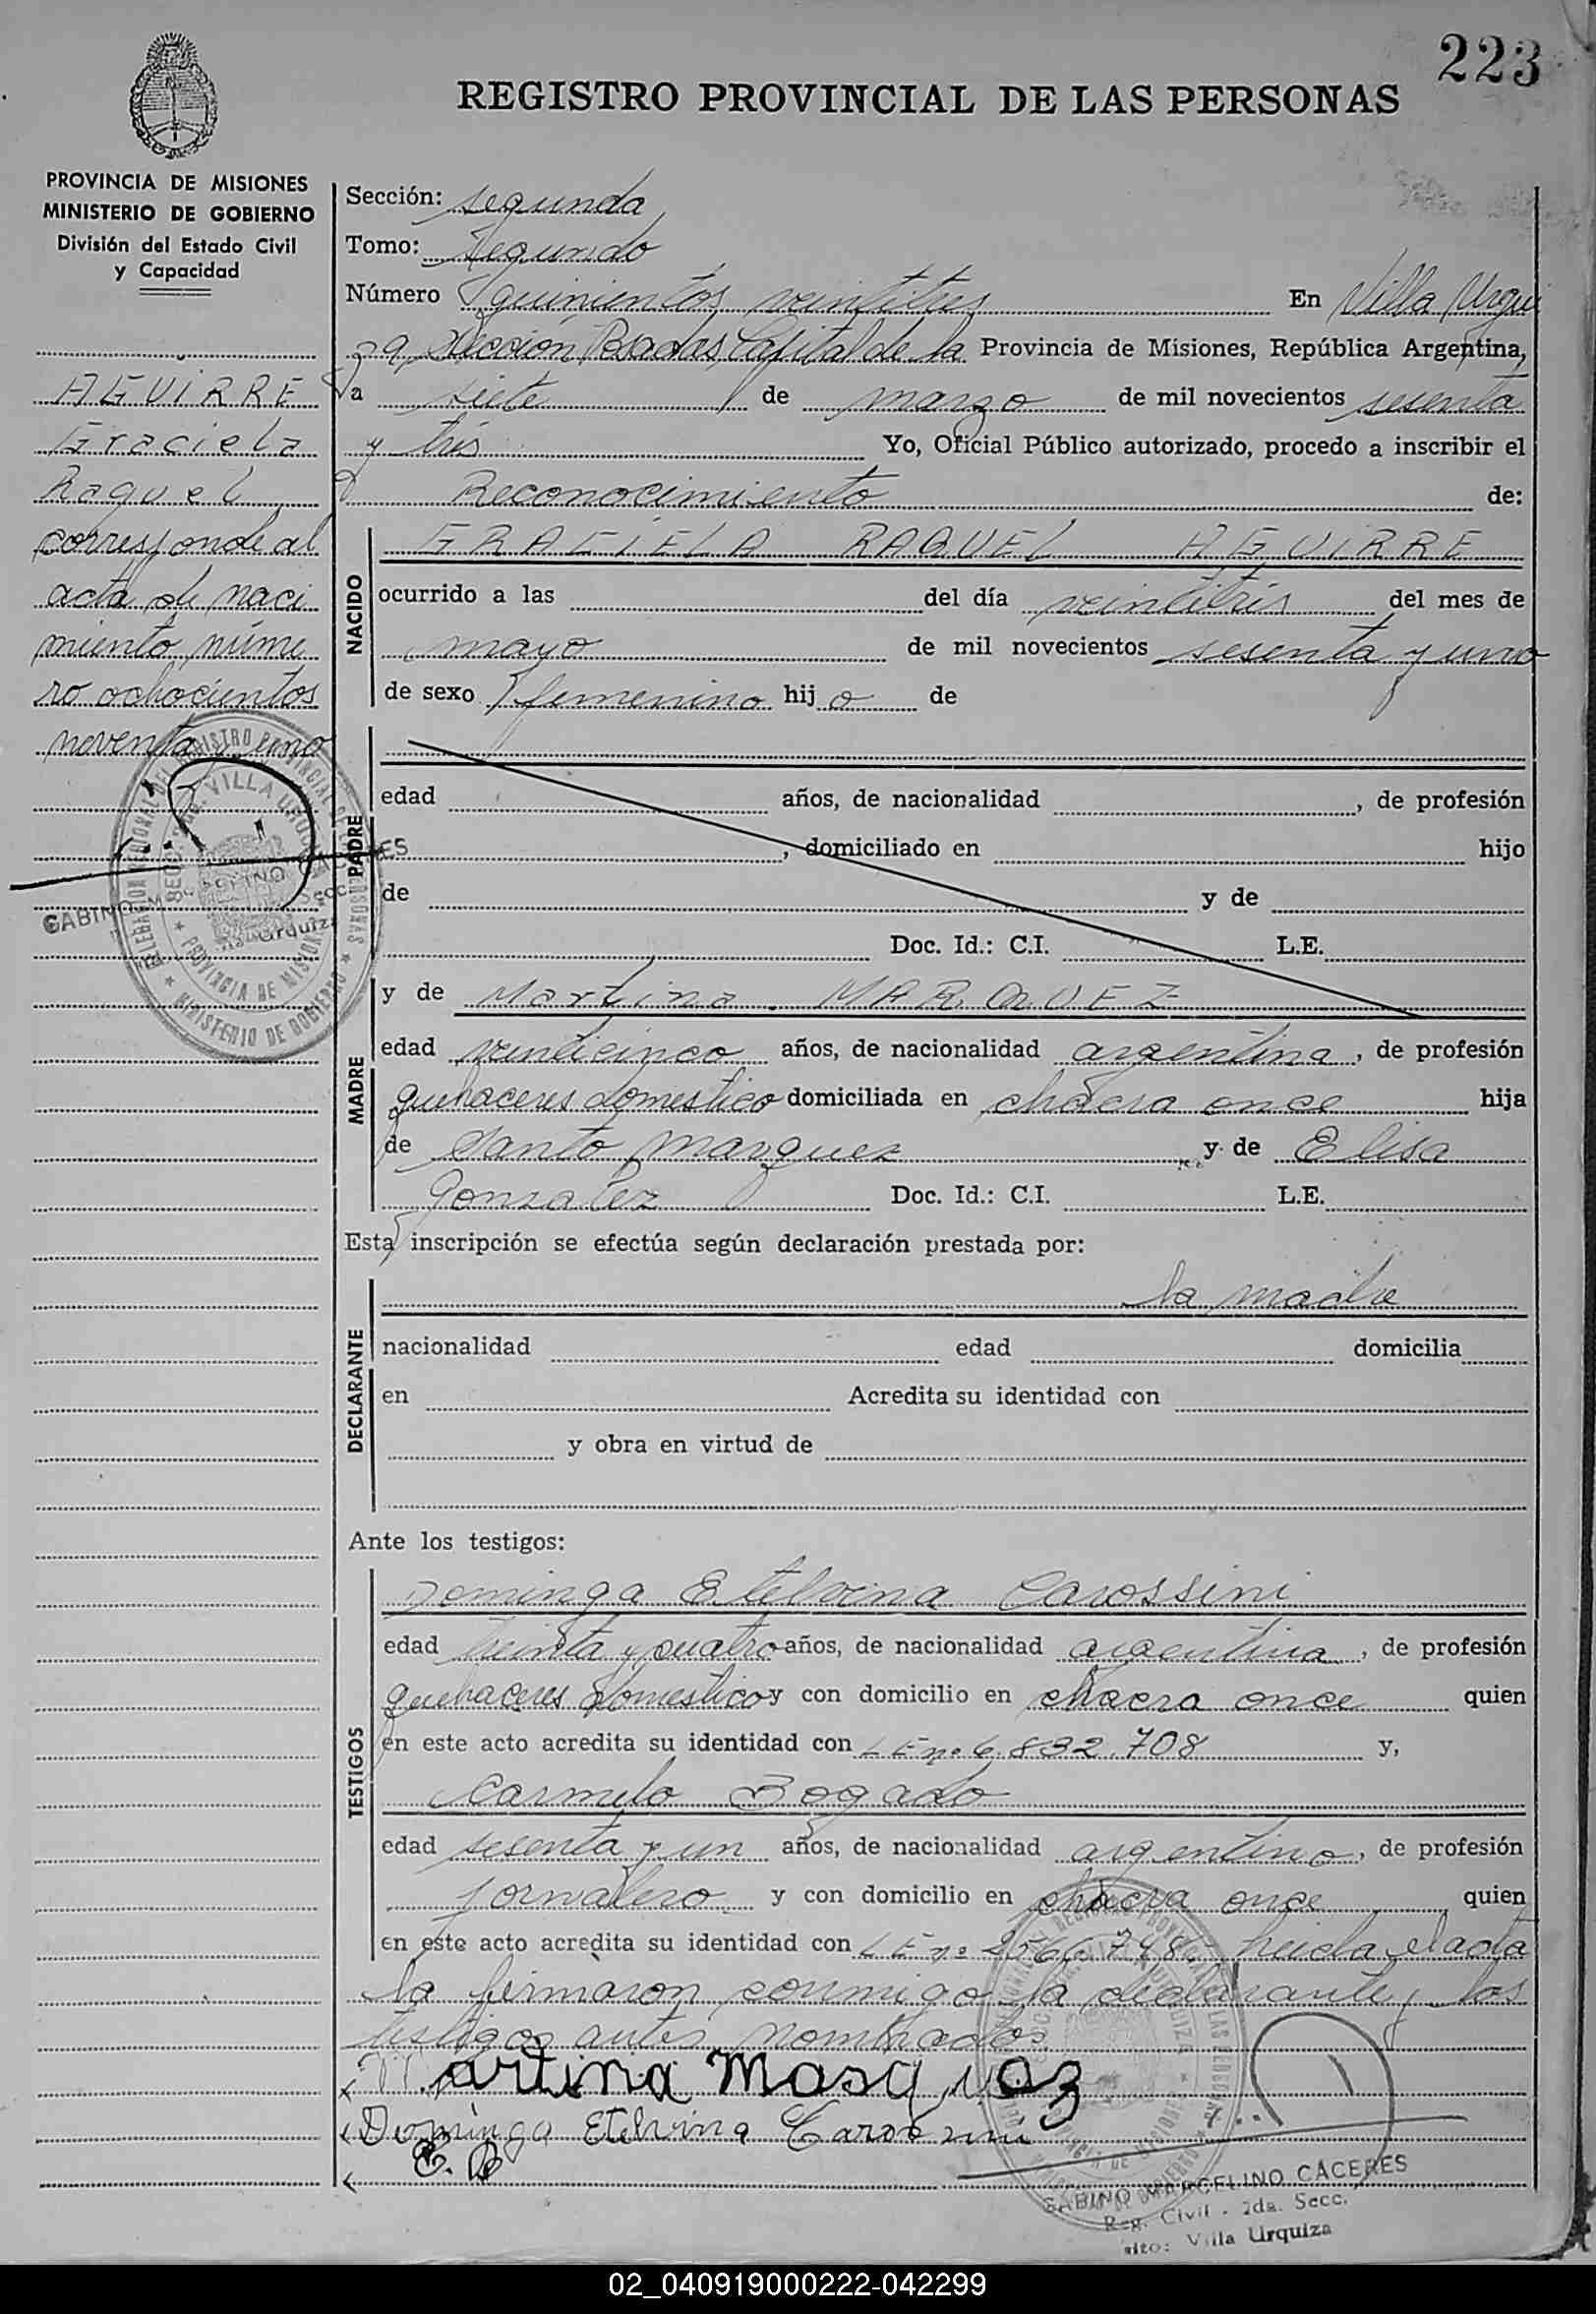 223
REGISTRO PROVINCIAL DE LAS PERSONAS
PROVINCIA DE MISIONES
MINISTERIO DE GOBIERNO
División del Estado Civil
y Capacidad
AGUIRRE
Graciela
Raquel
corresponde al
acta de naci
miento núme
ro ochocientos
noventa y uno
Sección: segunda
Tomo: Segundo
Número quinientos veintitres En Villa Urqui
za Sección Posadas Capital de la Provincia de Misiones, República Argentina,
a siete de marzo de mil novecientos sesenta
y tres Yo, Oficial Público autorizado, procedo a inscribir el
Reconocimiento de:
NACIDO
GRACIELA RAQUEL AGUIRRE
ocurrido a las del día veintitrés del mes de
mayo de mil novecientos sesenta y uno
de sexo femenino hij a de
PADRE
edad años, de nacionalidad , de profesión
, domiciliado en hijo
de y de
Doc. Id.: C.I. L.E.
MADRE
y de Martina MARQUEZ
edad veinticinco años, de nacionalidad argentina, de profesión
quehaceres domestico domiciliada en chacra once hija
de Santo Marquez y de Elisa
Gonzalez Doc. Id.: C.I. L.E.
Esta inscripción se efectúa según declaración prestada por:
DECLARANTE
la madre
nacionalidad edad domicilia
en Acredita su identidad con
y obra en virtud de
Ante los testigos:
TESTIGOS
Dominga Etelvina Carossini
edad treinta y cuatro años, de nacionalidad argentina, de profesión
quehaceres domestico y con domicilio en chacra once quien
en este acto acredita su identidad con LE nº 6.832.708 y,
Carmelo Bogado
edad sesenta y un años, de nacionalidad argentino, de profesión
jornalero y con domicilio en chacra once quien
en este acto acredita su identidad con LE nº leida el acta
la firmaron conmigo la declarante y los
testigos antes nombrados
Martina Marquez
Dominga Etelvina Carossini
C. B
GABINO MARCELINO CACERES
Reg. Civil - 2da. Secc.
Villa Urquiza
02_040919000222-042299